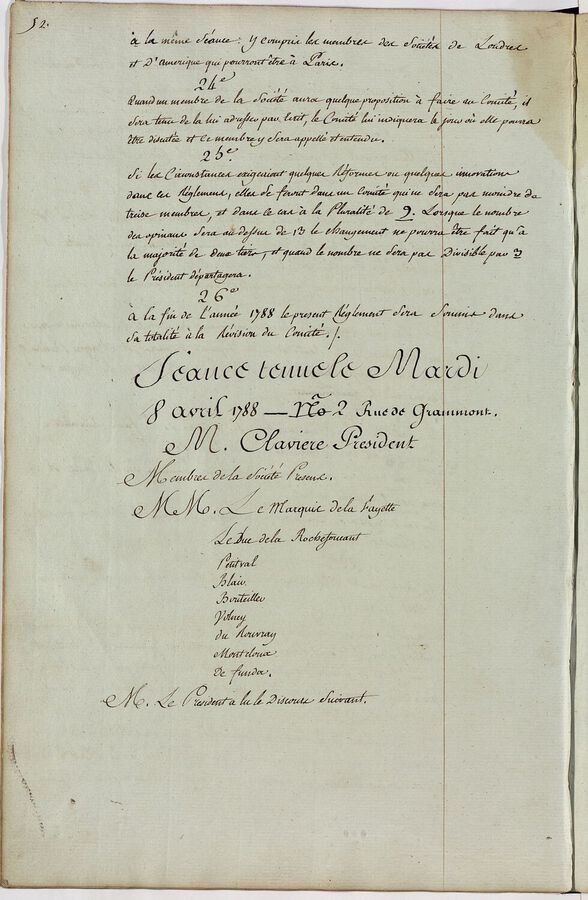 52.
à la même Séance: y compris les membres des Sociétés de Londres
et D'amerique qui pourront être à Paris.
24e
Quand un membre de la Société aura quelque proposition à faire au Comité, il
Sera tenu de la lui adresser par écrit, le Comité lui indiquera le jour où elle pourra
être discutée et le membre y Sera appellé et entendu.
25e.
Si les Circonstances exigeaient quelques Réformes ou quelques innovations
dans les Réglemens, elles Se feront dans un Comité qui ne Sera pas moindre de
treise membres, et dans ce cas à la Pluralité de 9. Lorsque le nombre
des opinans Sera au dessus de 13 le Changement ne pourra être fait qu'à
la majorité de deux tiers, et quand le nombre ne Sera pas Divisible par 3
le Président départagera.
26e
à la fin de L'année 1788 le present Réglement Sera Soumis dans
Sa totalité à la Révision du Comité./.
Séance tenue le Mardi
8 avril 1788 — No 2 Rue de Grammont.
M. Claviere President
Membres de la Société Presens.
MM. Le Marquis de la Fayette
Le Duc de la Rochefoucaut
Petitval
Blair
Bouteiller
Volney
du Rouvray
Montcloux
De
M. Le President a lu le Discours Suivant.